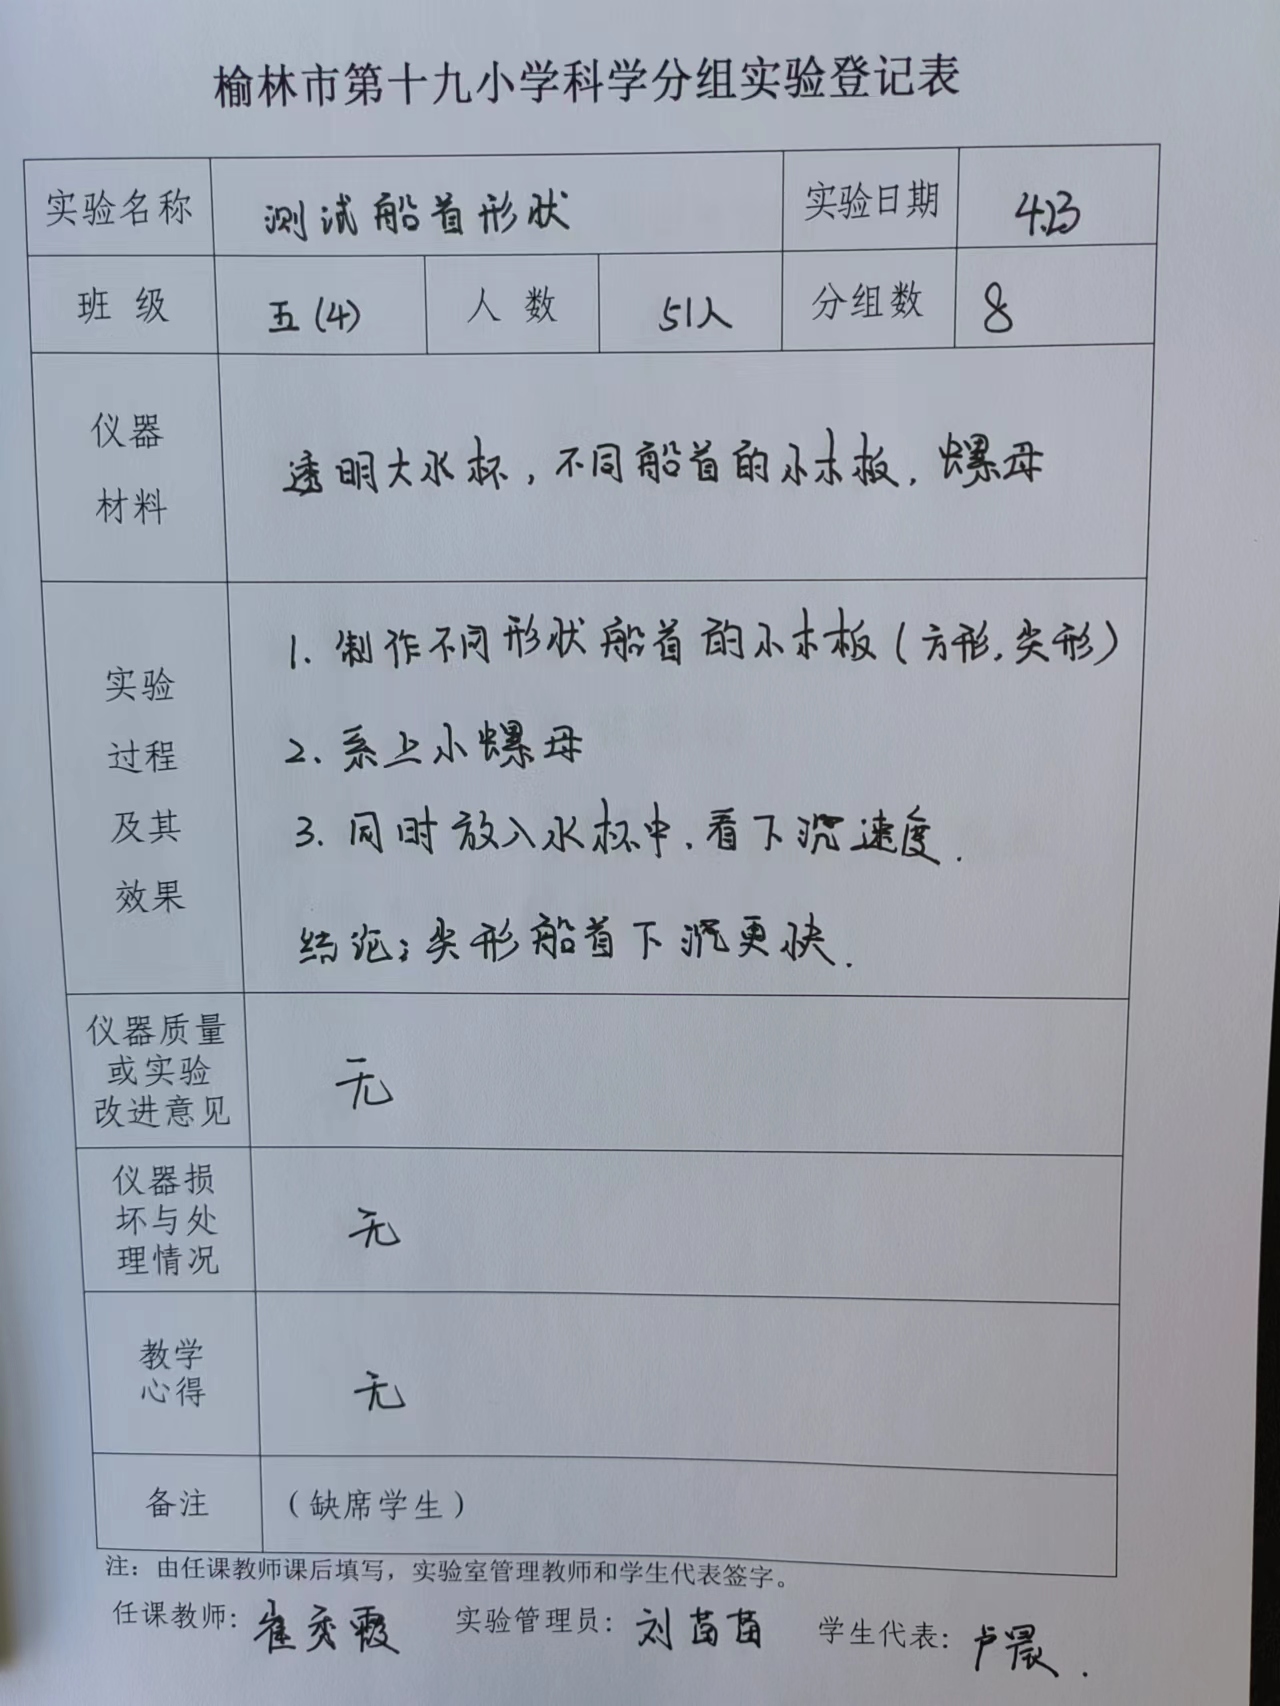 榆林市第十九小学科学分组实验登记表
实验名称 测试船首形状 实验日期 4.23
班 级 五(4) 人 数 51人 分组数 8
仪器
材料
透明大水杯,不同船首的小木板,螺母
实验
过程
及其
效果
1. 制作不同形状船首的小木板(方形,尖形)
2、系上小螺母
3. 同时放入水杯中,看下沉速度.
结论:尖形船首下沉更快.
仪器质量
或实验
改进意见
无
仪器损
坏与处
理情况
无
教学
心得
无
备注 (缺席学生)
注:由任课教师课后填写,实验室管理教师和学生代表签字。
任课教师:崔奕霞 实验管理员:刘苗苗 学生代表:卢晨.